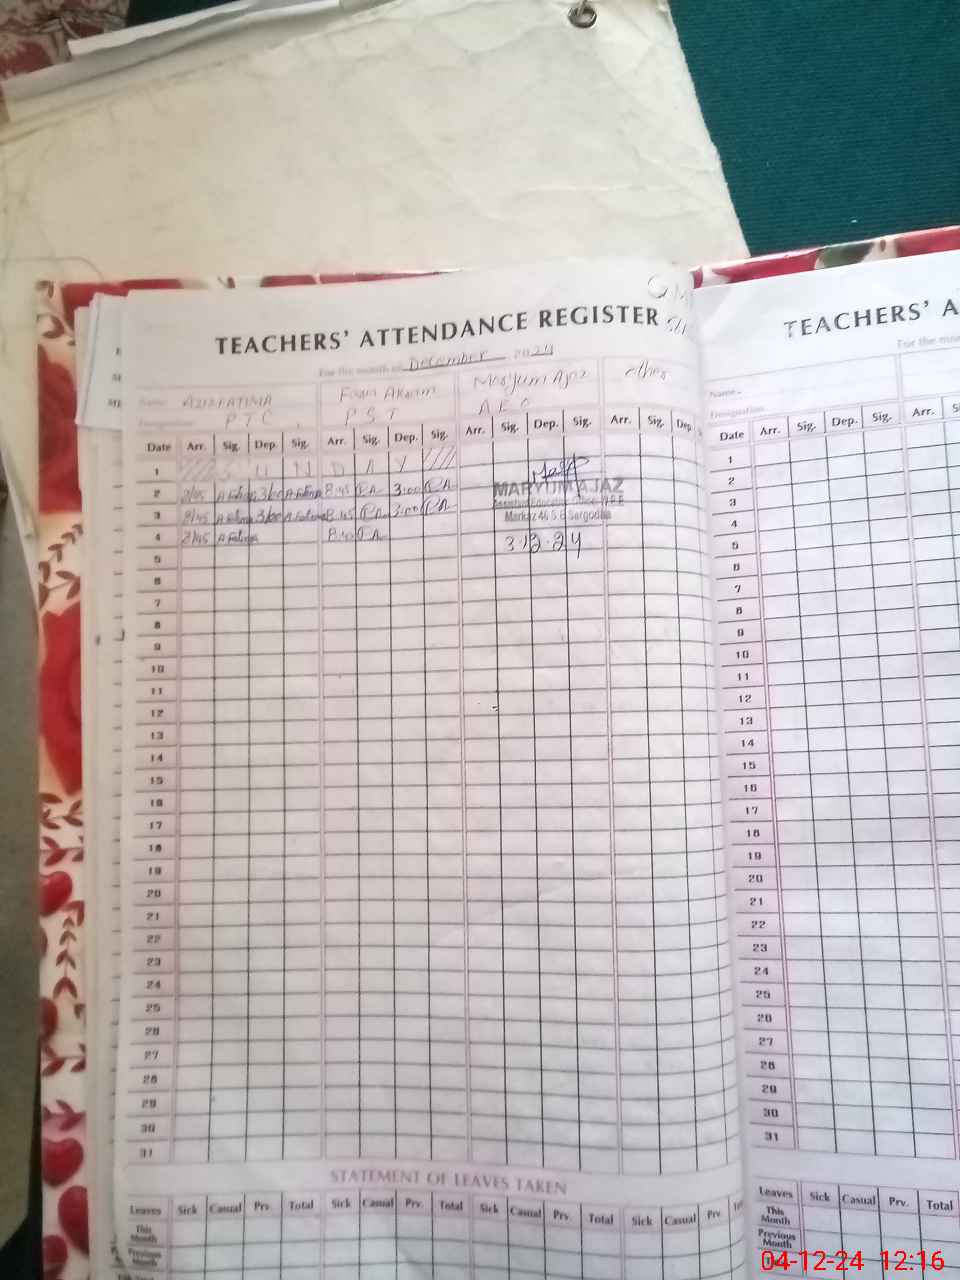 TEACHERS' ATTENDANCE REGISTER
For the month of December 2024
Name AZIZ FATIMA Maryum Ajaz other
Designation P T C P S T A E O
Date Arr. Sig. Dep. Sig. Arr. Sig. Dep. Sig. Arr. Sig. Dep. Sig. Arr. Sig. Dep
1 S U N D A Y
2 8/45 A Fatima 3/00 A Fatima 8:45 3:00
MARYUM AJAZ
3 8/45 A Fatima 3/00 A Fatima 8:45 3:00
Markaz 46 S.B Sargodha
4 8/45 A Fatima
3.12.24
5
6
7
8
9
10
11
12
13
14
15
16
17
18
19
20
21
22
23
24
25
26
27
28
29
30
31
STATEMENT OF LEAVES TAKEN
Leaves Sick Casual Prv. Total Sick Casual Prv. Total Sick Casual Prv. Total Sick Casual Prv.
This Month
Previous Month
TEACHERS' A
For the mon
Name
Designation
Date Arr. Sig. Dep. Sig. Arr. Si
1
2
3
4
5
6
7
8
9
10
11
12
13
14
15
16
17
18
19
20
21
22
23
24
25
26
27
28
29
30
31
Leaves Sick Casual Prv. Total
This Month
Previous Month
04-12-24 12:16